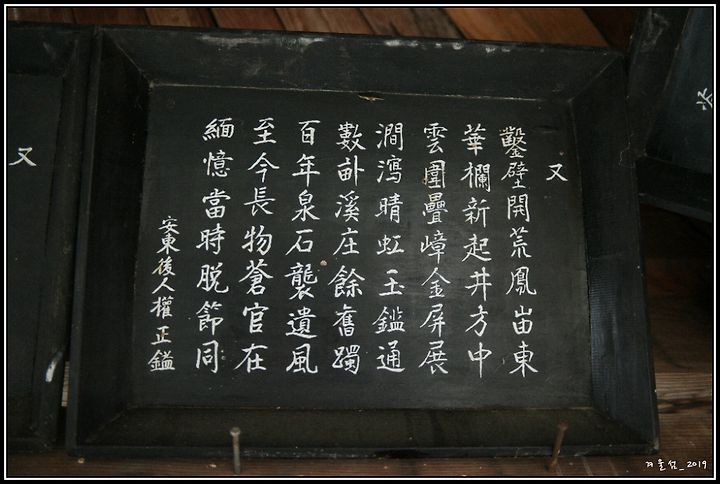 又
鑿壁開荒鳳峀東
華欄新起井方中
雲圍疊嶂金屏展
澗瀉晴虹玉鑑通
數畝溪庄餘舊躅
百年泉石襲遺風
至今長物蒼官在
緬憶當時脫節同
安東後人權正鎰
又
겨울섬_2019